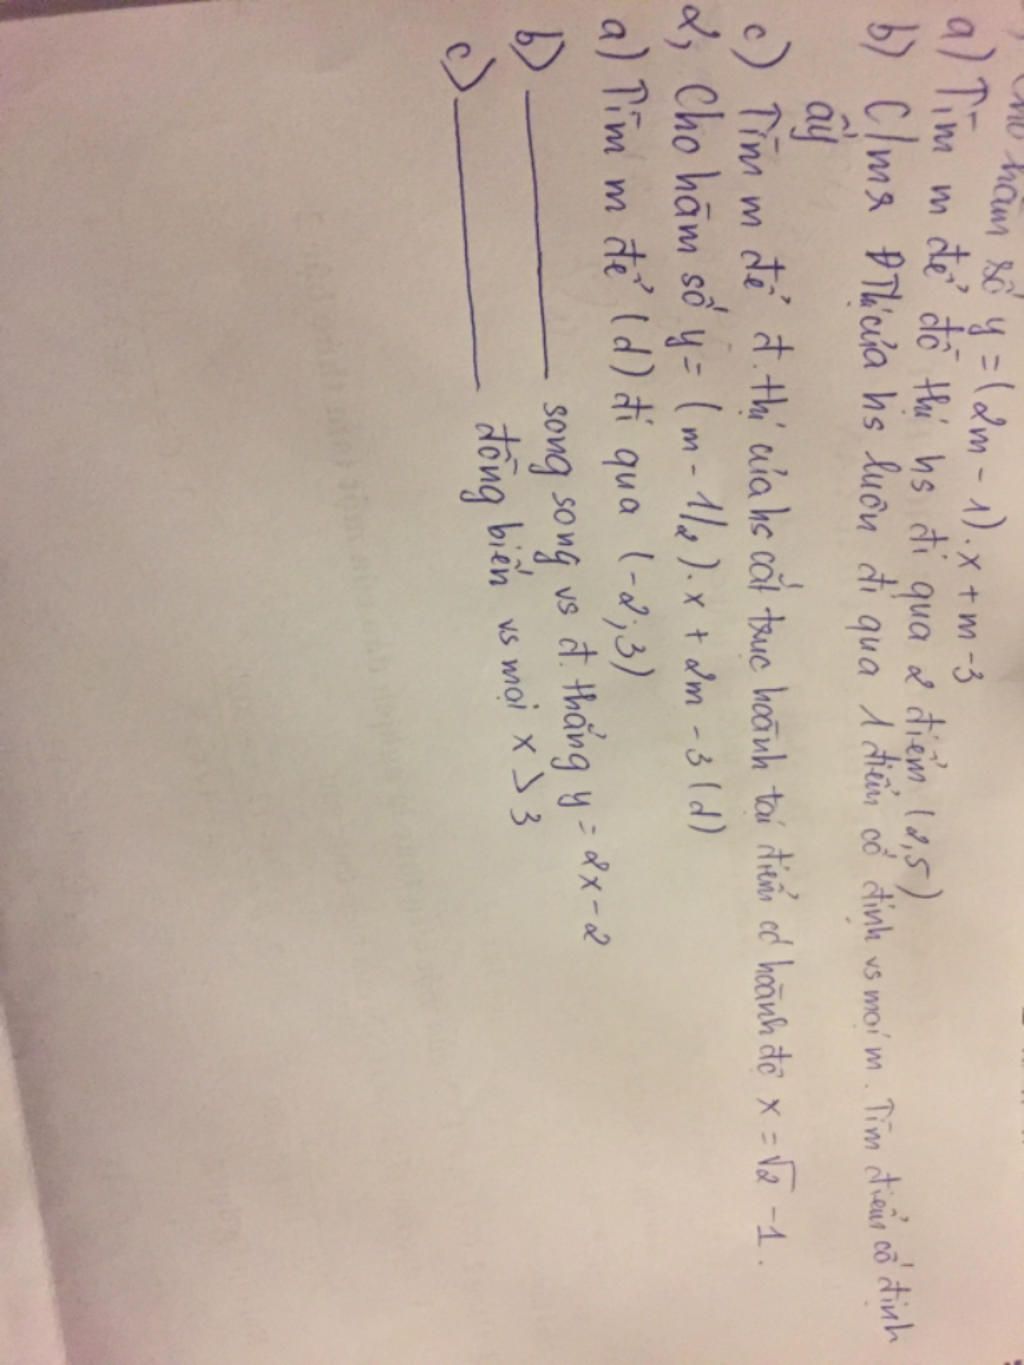 Cho hàm số y = (2m - 1).x + m - 3
a) Tìm m để đồ thị hs đi qua 2 điểm (2,5)
b) C/mR ĐThị của hs luôn đi qua 1 điểm cố định vs mọi m. Tìm điểm cố định
ấy
c) Tìm m để đ.thị của hs cắt trục hoành tại điểm có hoành độ x = √2 - 1.
2, Cho hàm số y = (m - 1/2).x + 2m - 3 (d)
a) Tìm m để (d) đi qua (-2;3)
b) ———— song song vs đ.thẳng y = 2x - 2
c) ———— đồng biến vs mọi x > 3